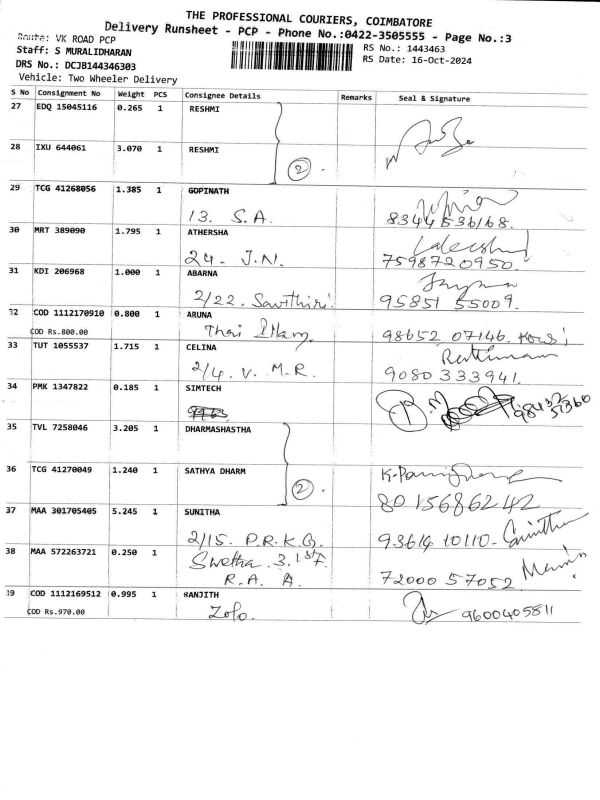 THE PROFESSIONAL COURIERS, COIMBATORE
Delivery Runsheet - PCP - Phone No.:0422-3505555 - Page No.:3
Route: VK ROAD PCP
RS No.: 1443463
Staff: S MURALIDHARAN
RS Date: 16-Oct-2024
DRS No.: DCJB144346303
Vehicle: Two Wheeler Delivery
S No Consignment No Weight PCS Consignee Details Remarks Seal & Signature
27 EDQ 15045116 0.265 1 RESHMI
28 IXU 644061 3.070 1 RESHMI
2
29 TCG 41268056 1.385 1 GOPINATH
13. S.A. 8344536168.
30 MRT 389090 1.795 1 ATHERSHA
24. J.N. 7598720950.
31 KDI 206968 1.000 1 ABARNA
2/22. Savithiri 95851 55009.
32 COD 1112170910 0.800 1 ARUNA
COD Rs.800.00 Thai 98652 07146.
33 TUT 1055537 1.715 1 CELINA
2/4. V. M.R. 9080 333941.
34 PMK 1347822 0.185 1 SIMTECH
35 TVL 7258046 3.205 1 DHARMASHASTHA
36 TCG 41270049 1.240 1 SATHYA DHARM
2 8015686242
37 MAA 301705405 5.245 1 SUNITHA
2/15. P.R.K.G. 93614 10110.
38 MAA 572263721 0.250 1 Swetha 3.1st F.
R.A. A. 72000 57052
39 COD 1112169512 0.995 1 RANJITH
COD Rs.970.00 Zolo. 9600405811